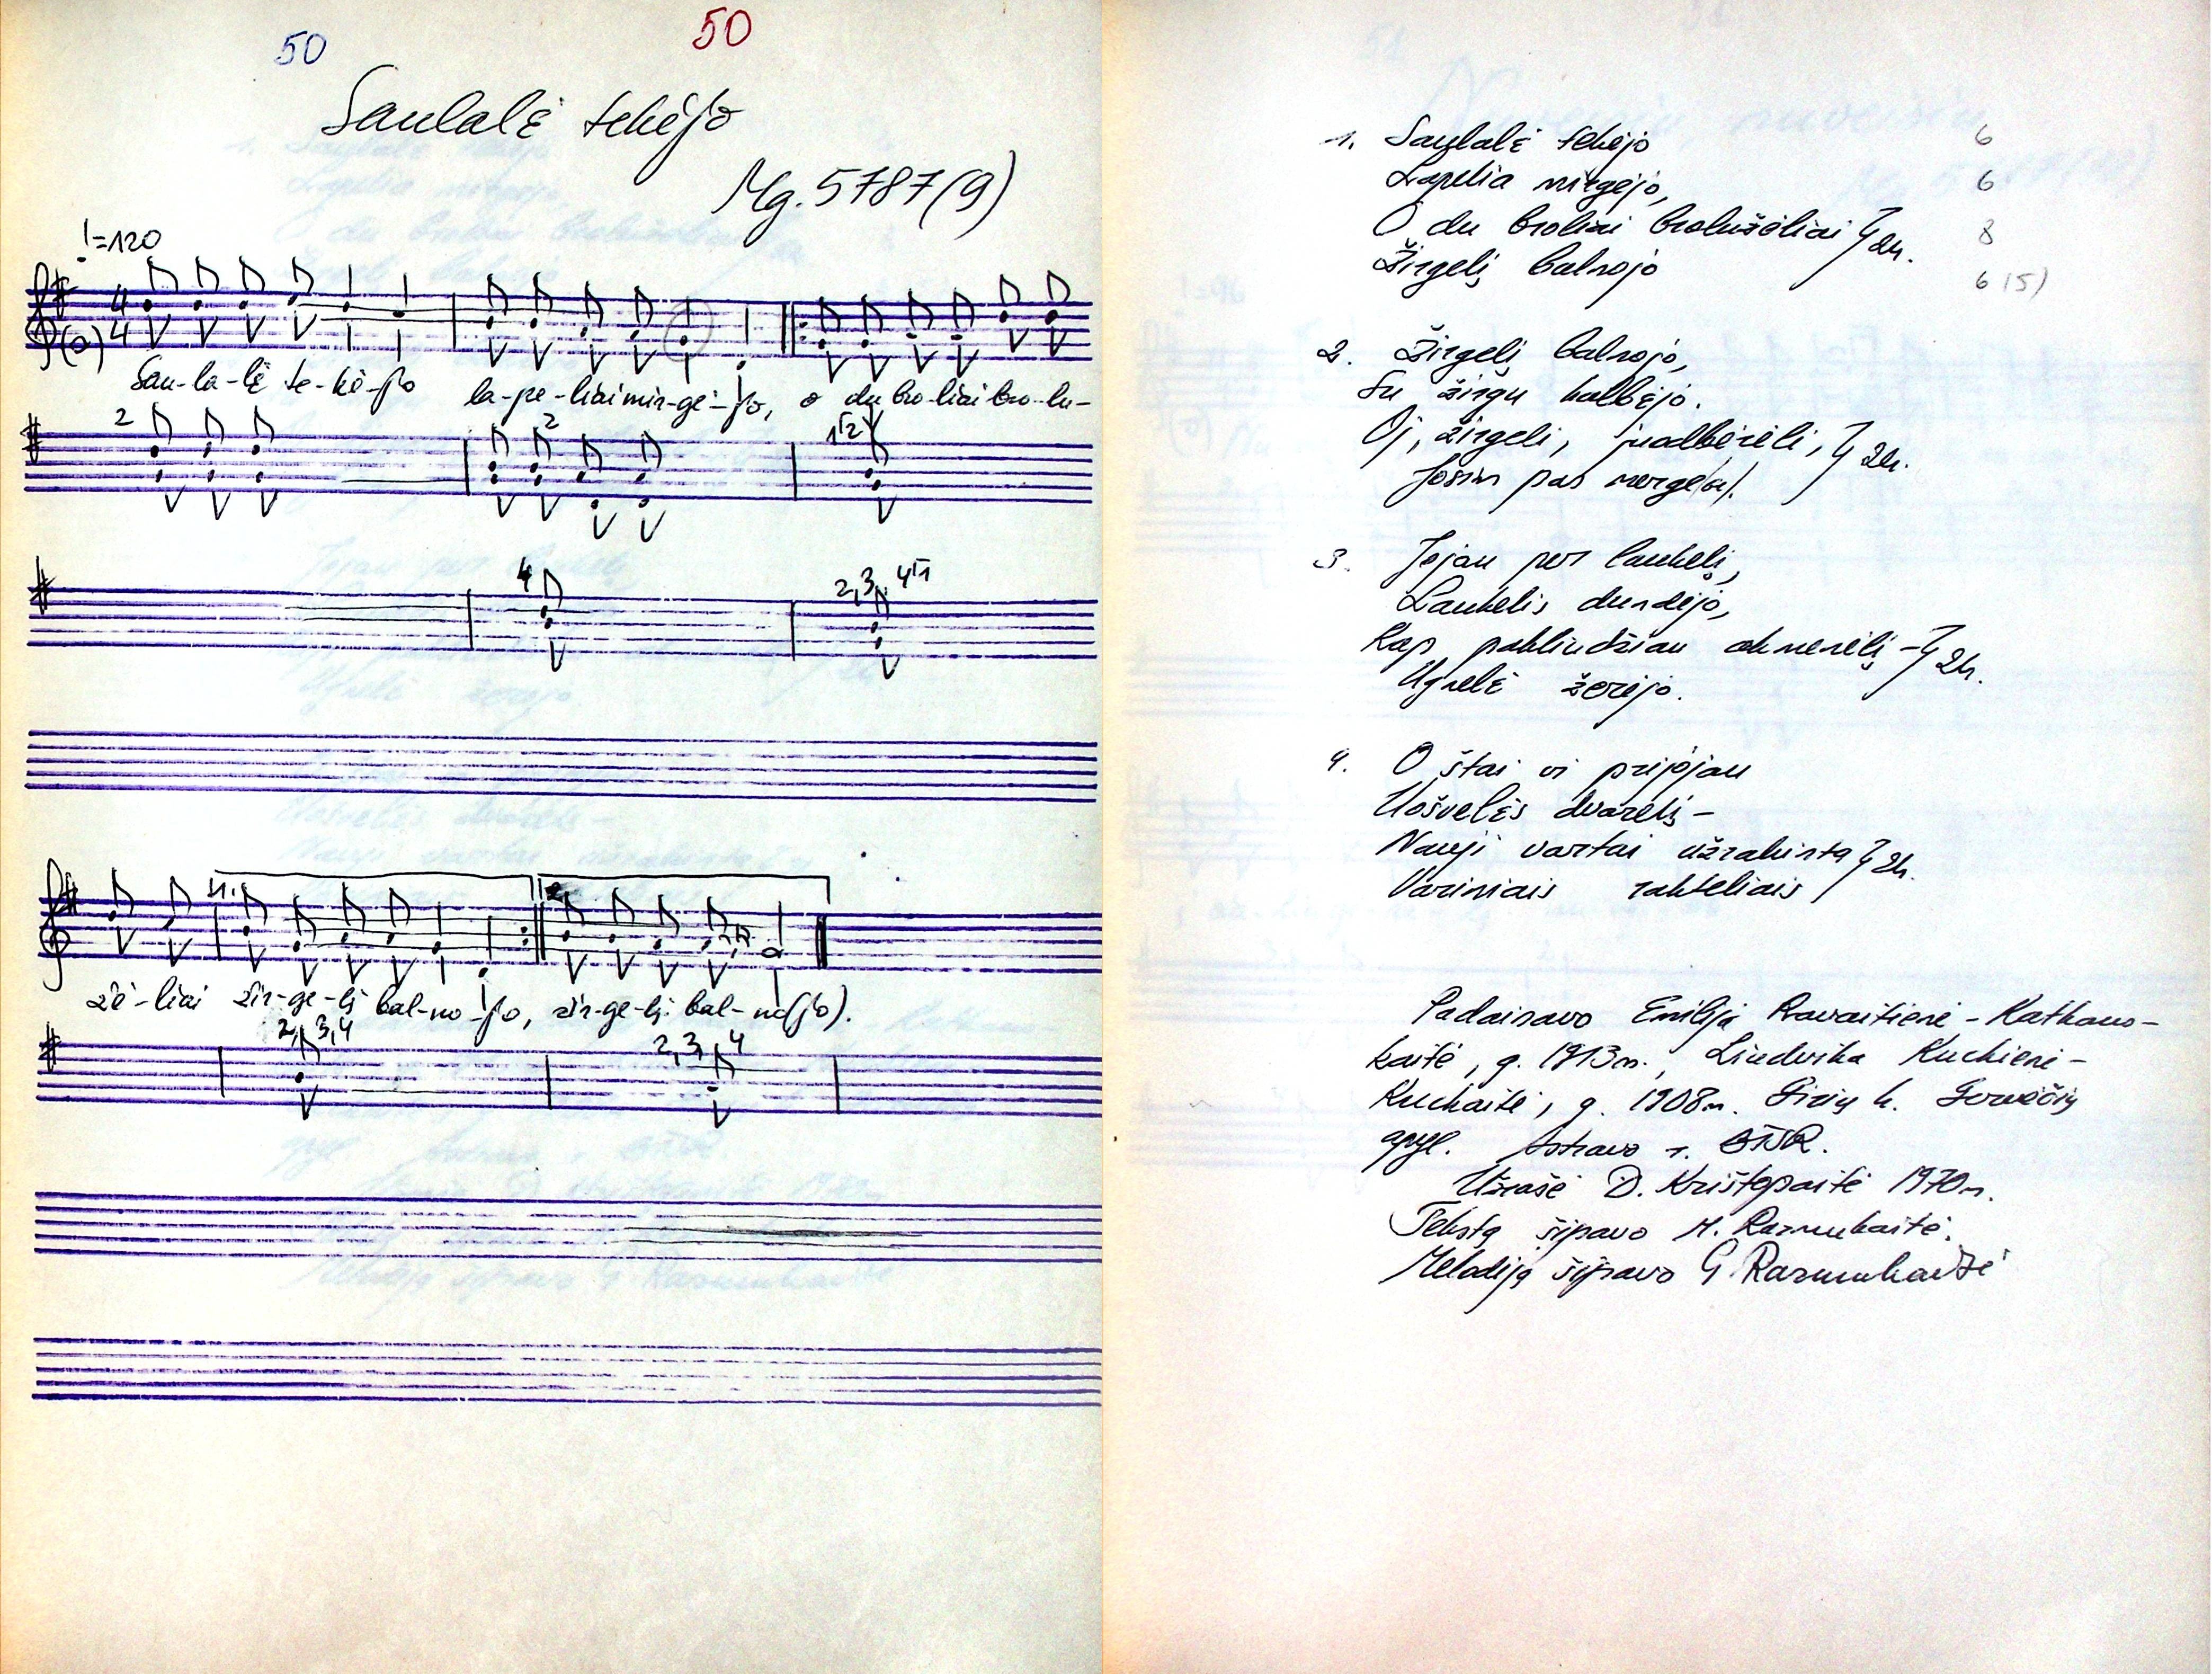 50
50
Saulalė tekėjo
Mg. 5787(9)
=120
4
4
(a)
Sau-la-lė te-kė-jo la-pe-liai mir-gė-jo, o du bro-liai bro-lu-
2
2
1 2
4
2,3, 4
1.
2.
žė-liai žir-ge-lį bal-no-jo, žir-ge-lį bal-no(jo).
2, 3,4
2,3, 4
1. Saulalė tekėjo 6
Lapelia mirgėjo, 6
O du broliai brolužėliai } 2k. 8
Žirgelį balnojo 6 (5)
2. Žirgelį balnojo,
Su žirgu kalbėjo.
Oj, žirgeli, juodbėrėli, } 2k.
Josim pas merge(lę).
3. Jojau per laukelį,
Laukelis dundėjo,
Kap pakliudžiau akmenėlį – } 2k.
Ugnelė žėrėjo.
4. O štai vi prijojau
Uošvelės dvarelį –
Nauji vartai užrakinta } 2k.
Variniais rakteliais
Padainavo Emilija
g. 1913m., Liudvika Kuckienė-
Kuckaitė, g. 1908m. k. Gervėčių
apyl. Astravo r. BTSR.
Užrašė D. Krištopaitė 1970m.
Tekstą šifravo M. Razmukaitė.
Melodiją šifravo G. Razmukaitė